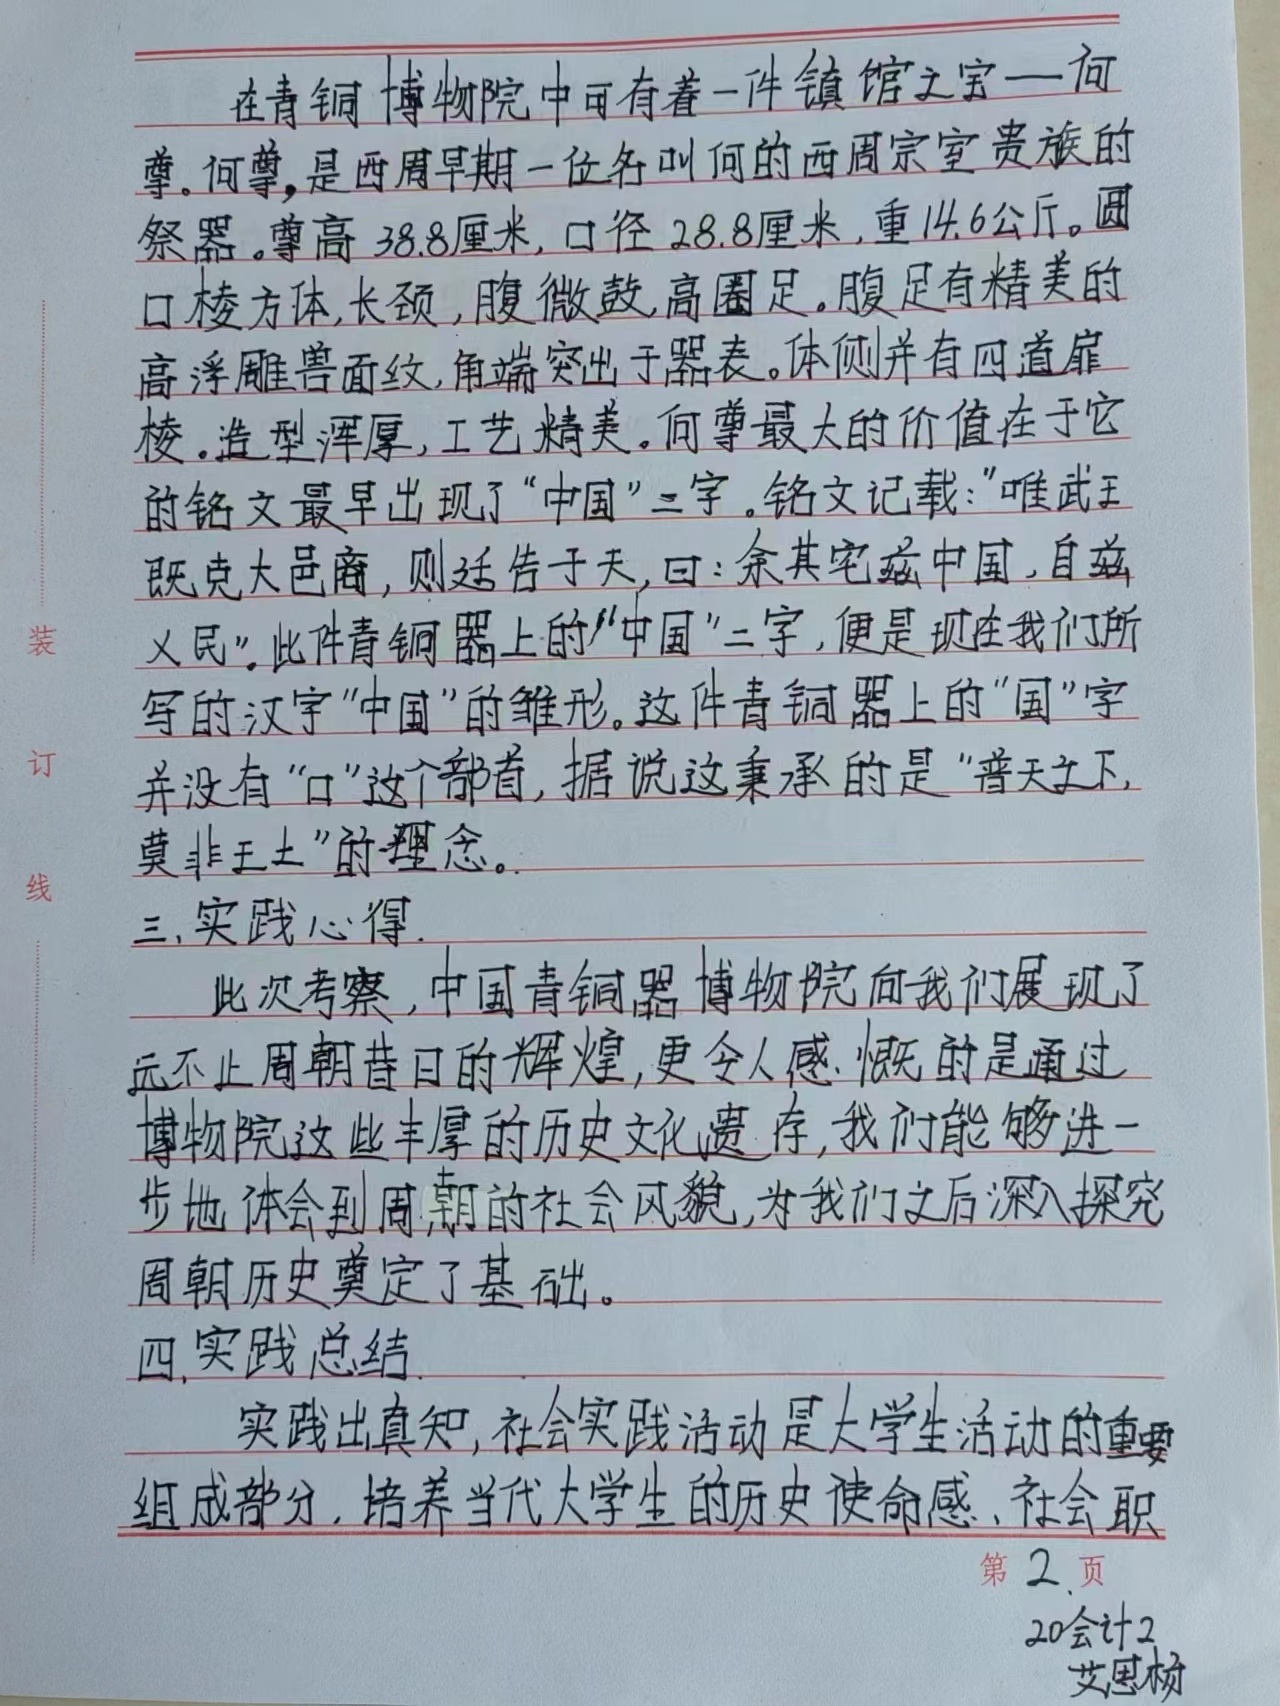 在青铜博物院中可有着一件镇馆之宝——何
尊。何尊，是西周早期一位名叫何的西周宗室贵族的
祭器。尊高38.8厘米，口径28.8厘米，重14.6公斤。圆
口棱方体，长颈，腹微鼓，高圈足。腹足有精美的
高浮雕兽面纹，角端突出于器表。体侧并有四道扉
棱。造型浑厚，工艺精美。何尊最大的价值在于它
的铭文最早出现了“中国”二字。铭文记载：“唯武王
既克大邑商，则廷告于天，曰：余其宅兹中国，自兹
乂民”。此件青铜器上的“中国”二字，便是现在我们所
写的汉字“中国”的雏形。这件青铜器上的“国”字
并没有“口”这个部首，据说这秉承的是“普天之下，
莫非王土”的理念。
三、实践心得.
此次考察，中国青铜器博物院向我们展现了
远不止周朝昔日的辉煌，更令人感慨的是通过
博物院这些丰厚的历史文化遗存，我们能够进一
步地体会到周朝的社会风貌，为我们之后深入探究
周朝历史奠定了基础。
四、实践总结.
实践出真知，社会实践活动是大学生活动的重要
组成部分，培养当代大学生的历史使命感、社会职
装
订
线
第2页
20会计2
艾思杨